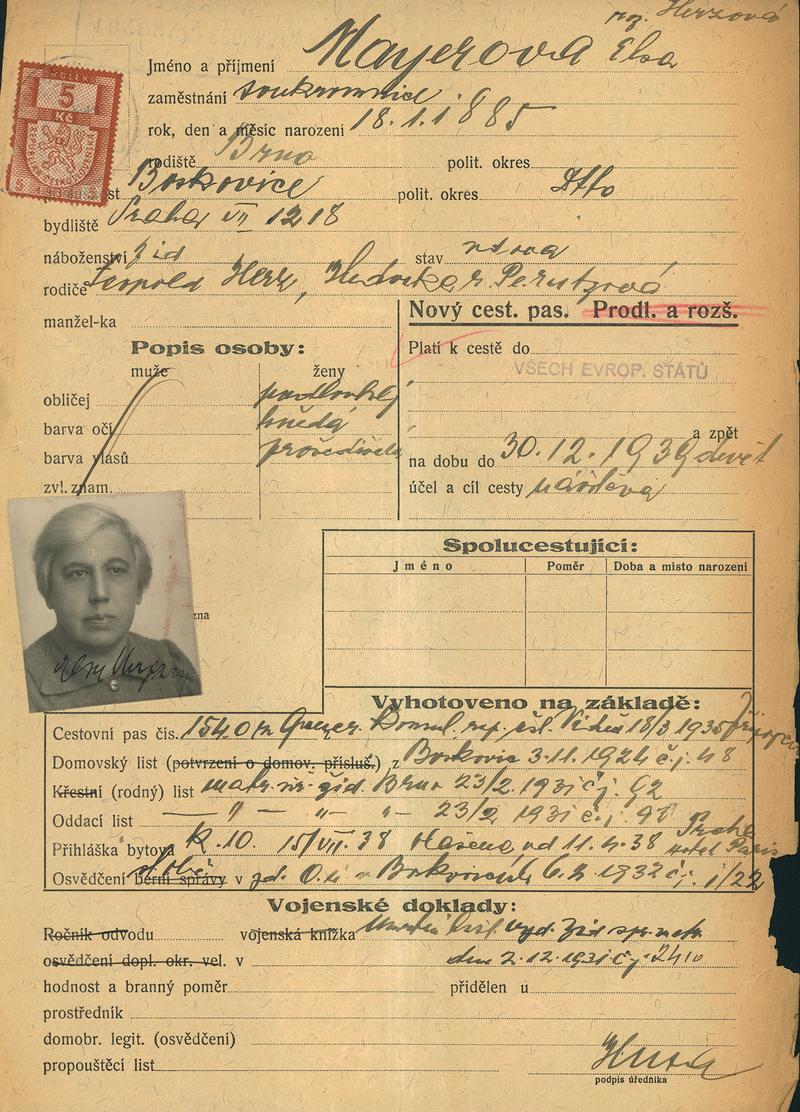 roz. Herzová
Jméno a příjmení Mayerova Elsa
KOLEK
5
Kč
zaměstnání soukromnice
rok, den a měsíc narození 18.1.1885
rodiště Brno polit. okres
st Boskovice polit. okres dtto
bydliště Praha VII 1218
náboženství žid stav vdova
rodiče Leopold Herz, Hedvika r. Perutzová
manžel-ka
Nový cest. pas. Prodl. a rozš.
Popis osoby:
Platí k cestě do
muže ženy
VŠECH EVROP. STÁTŮ
obličej
barva očí hnědá
barva vlasů prošedivělá
a zpět
na dobu do 30.12.1939
zvl. znam.
účel a cíl cesty návštěva
Spolucestující:
Jméno Poměr Doba a místo narození
zna
Vyhotoveno na základě:
Cestovní pas čís. 154.0 Konsul. rep. čsl. Vídeň 18/3 1935
Domovský list (potvrzení o domov. přísluš.) z Boskovic 3.11.1924 č.j. 48
Křestní (rodný) list matr. úř. žid. Brno 23/2. 1931 čj. 92
Oddací list — " — " — " — 23/2 1931 č.j. 98
Přihláška bytová K.10. 15/VII.38 hlášena od 11.4.38 Praha hotel Paris
Osvědčení berní správy v
Vojenské doklady:
Ročník odvodu vojenská knížka
osvědčení dopl. okr. vel. v dne 2.12.1931 čj. 2410
hodnost a branný poměr přidělen u
prostředník
domobr. legit. (osvědčení)
propouštěcí list
podpis úředníka